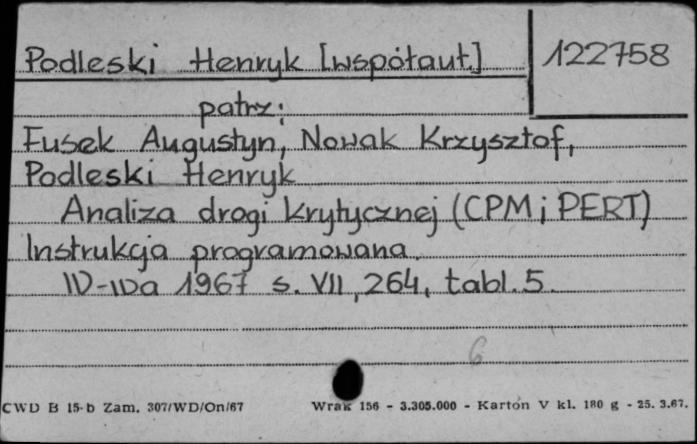 Podleski Henryk [współaut.] 122758
patrz:
Fusek Augustyn, Nowak Krzysztof,
Podleski Henryk
Analiza drogi krytycznej (CPM i PERT)
Instrukcja programowana.
W-wa 1967 s. VII, 264, tabl. 5.
6
CWD B 15-b Zam. 307/WD/On/67 Wrak 156 - 3.305.000 - Karton V kl. 180 g - 25. 3.67.